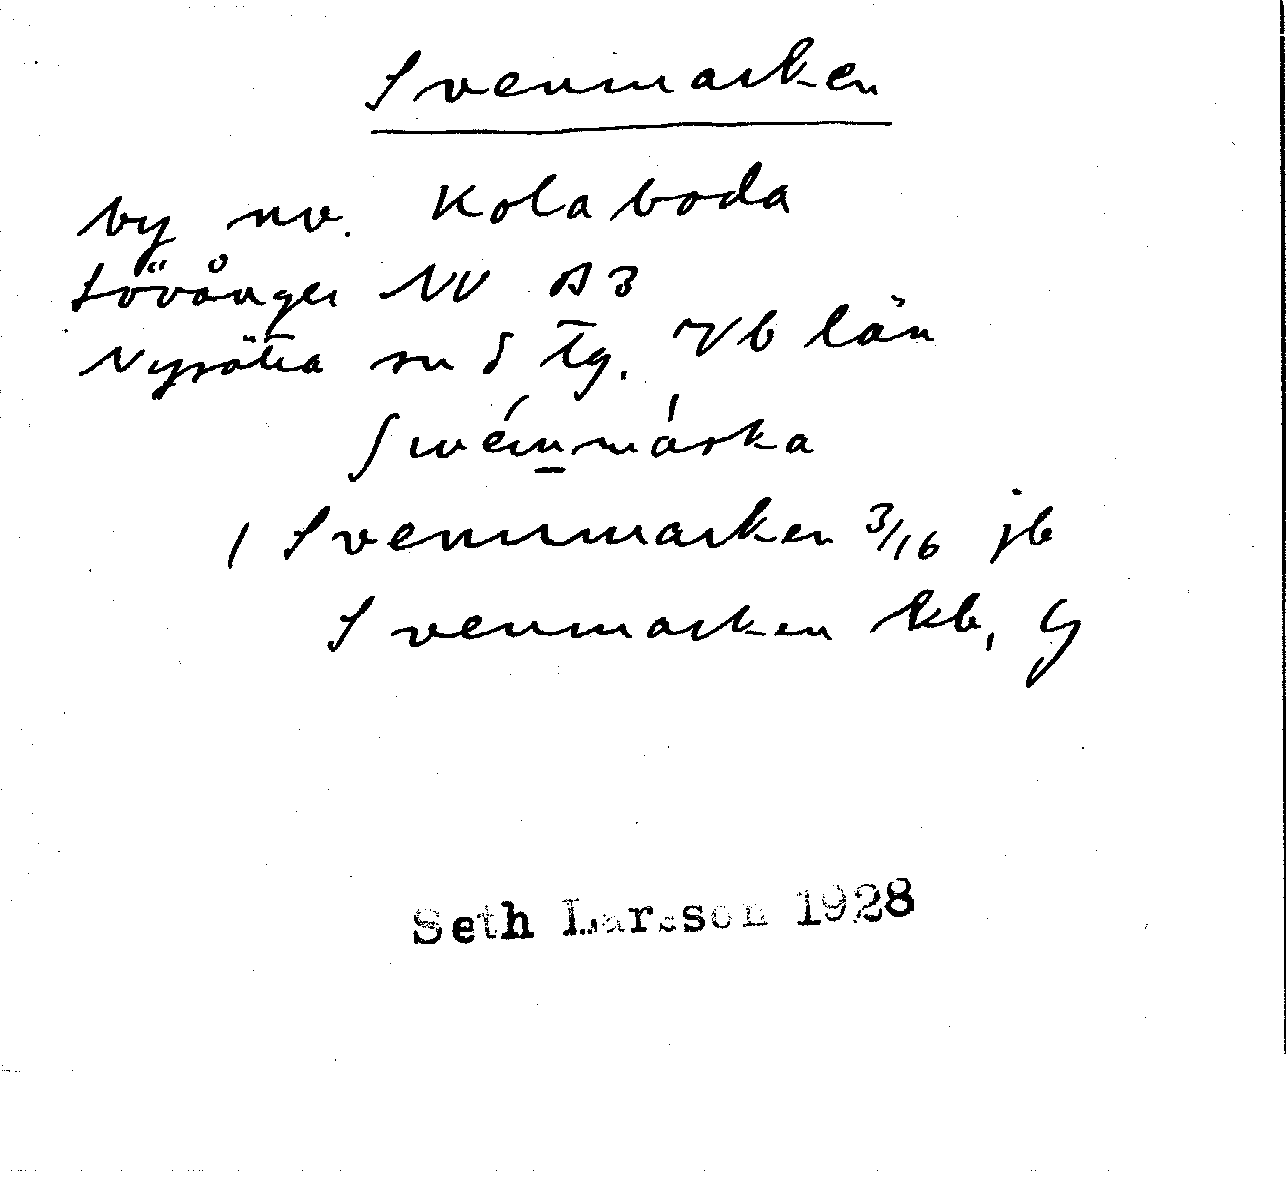 Svenmarken
by nv. Kolaboda
Lövånger NV A3
Nysätra sn S Tg. Vb län
1 Svenmarken 3/16 jb
Svenmarken kb, G
Seth Larsson 1928